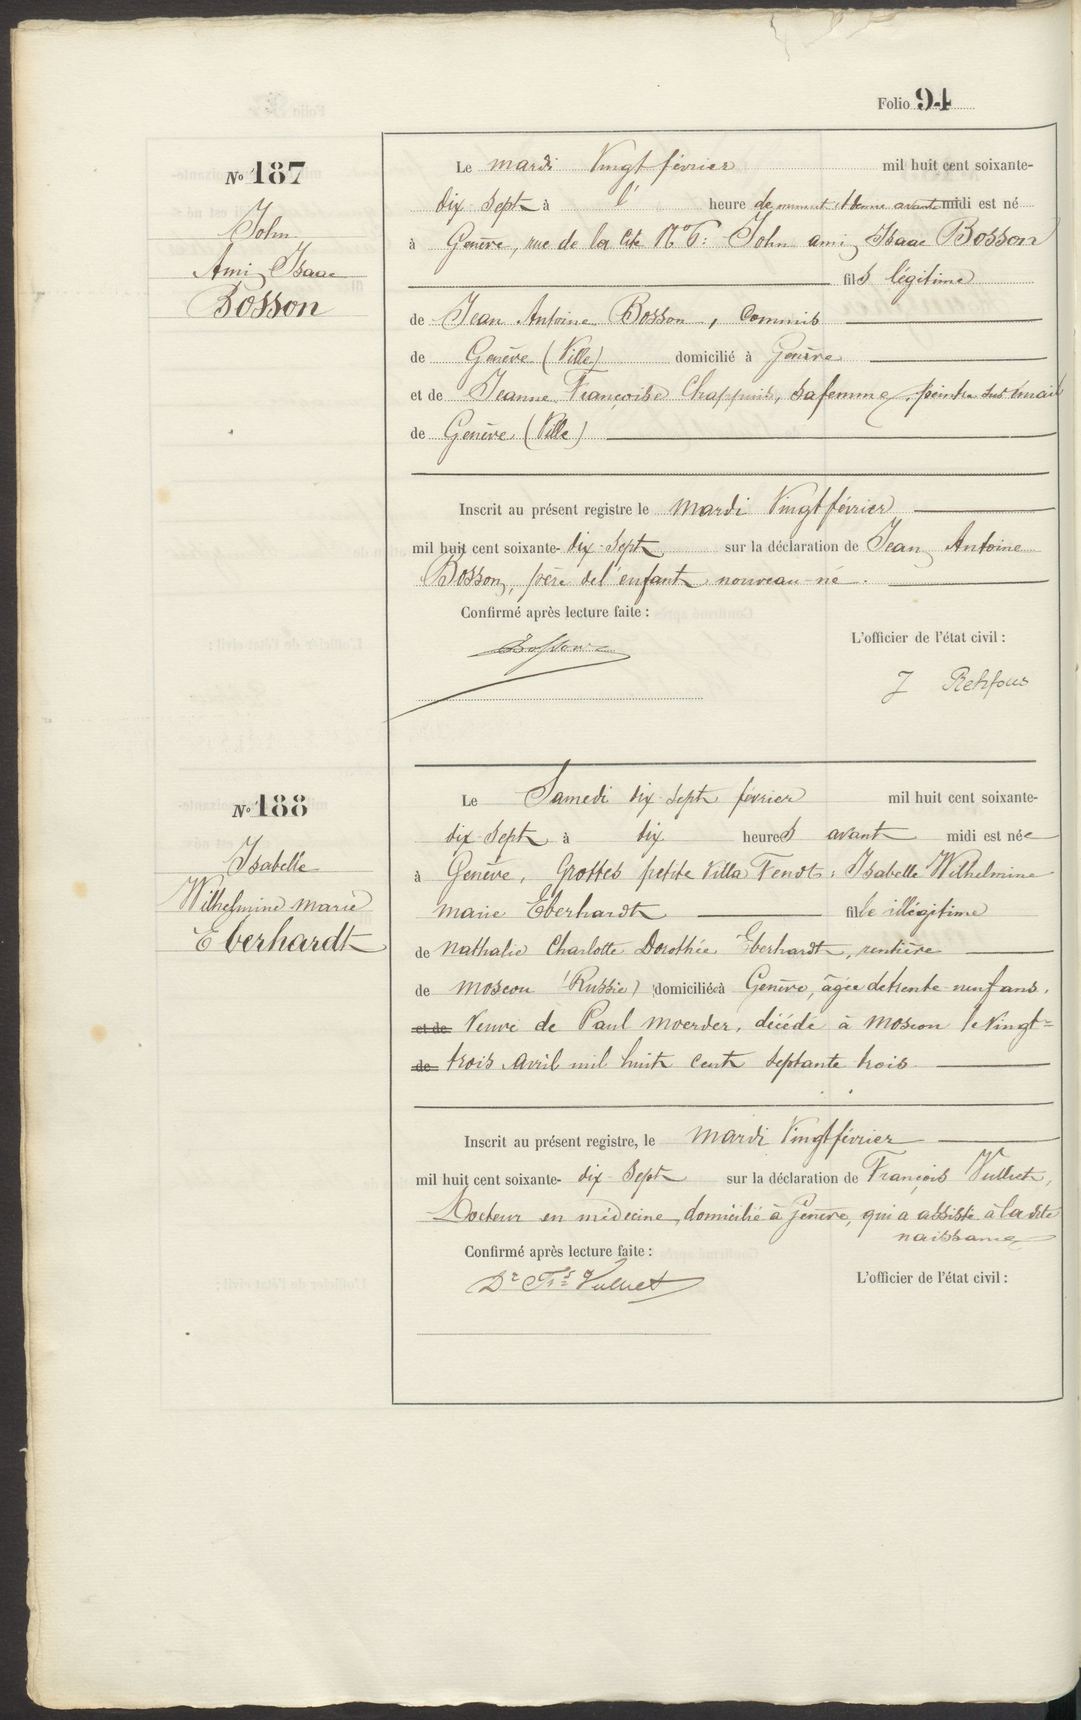 Folio 94
No 187
John
Ami Isaac
Bosson
Le mardi Vingt février mil huit cent soixante-
dix-sept à l' heure avant midi est né
à Genève, rue de la Cité No : John Ami Isaac Bosson
fils légitime
de Jean Antoine Bosson, Commis
de Genève (Ville) domicilié à Genève
et de Jeanne Françoise Chappuis, sa femme, peintre sur émail
de Genève (Ville)
Inscrit au présent registre le mardi Vingt février
mil huit cent soixante-dix-sept sur la déclaration de Jean Antoine
Bosson, père de l'enfant nouveau-né.
Confirmé après lecture faite :
L'officier de l'état civil :
Bosson
J Rehfous
No 188
Isabelle
Wilhelmine Marie
Eberhardt
Le Samedi dix-sept février mil huit cent soixante-
dix-sept à dix heures avant midi est née
à Genève, Grottes petite Villa Fendt : Isabelle Wilhelmine
Marie Eberhardt fille illégitime
de Nathalie Charlotte Dorothée Eberhardt, rentière
de Moscou (Russie) domiciliée à Genève, âgée de trente-neuf ans,
et de Veuve de Paul Moerder, décédé à Moscou le Vingt=
de trois Avril mil huit cent septante trois
Inscrit au présent registre, le mardi Vingt février
mil huit cent soixante-dix-sept sur la déclaration de François Vulliet,
Docteur en médecine, domicilié à Genève, qui a assisté à la dite
naissance
Confirmé après lecture faite :
L'officier de l'état civil :
Dr Fs Vulliet